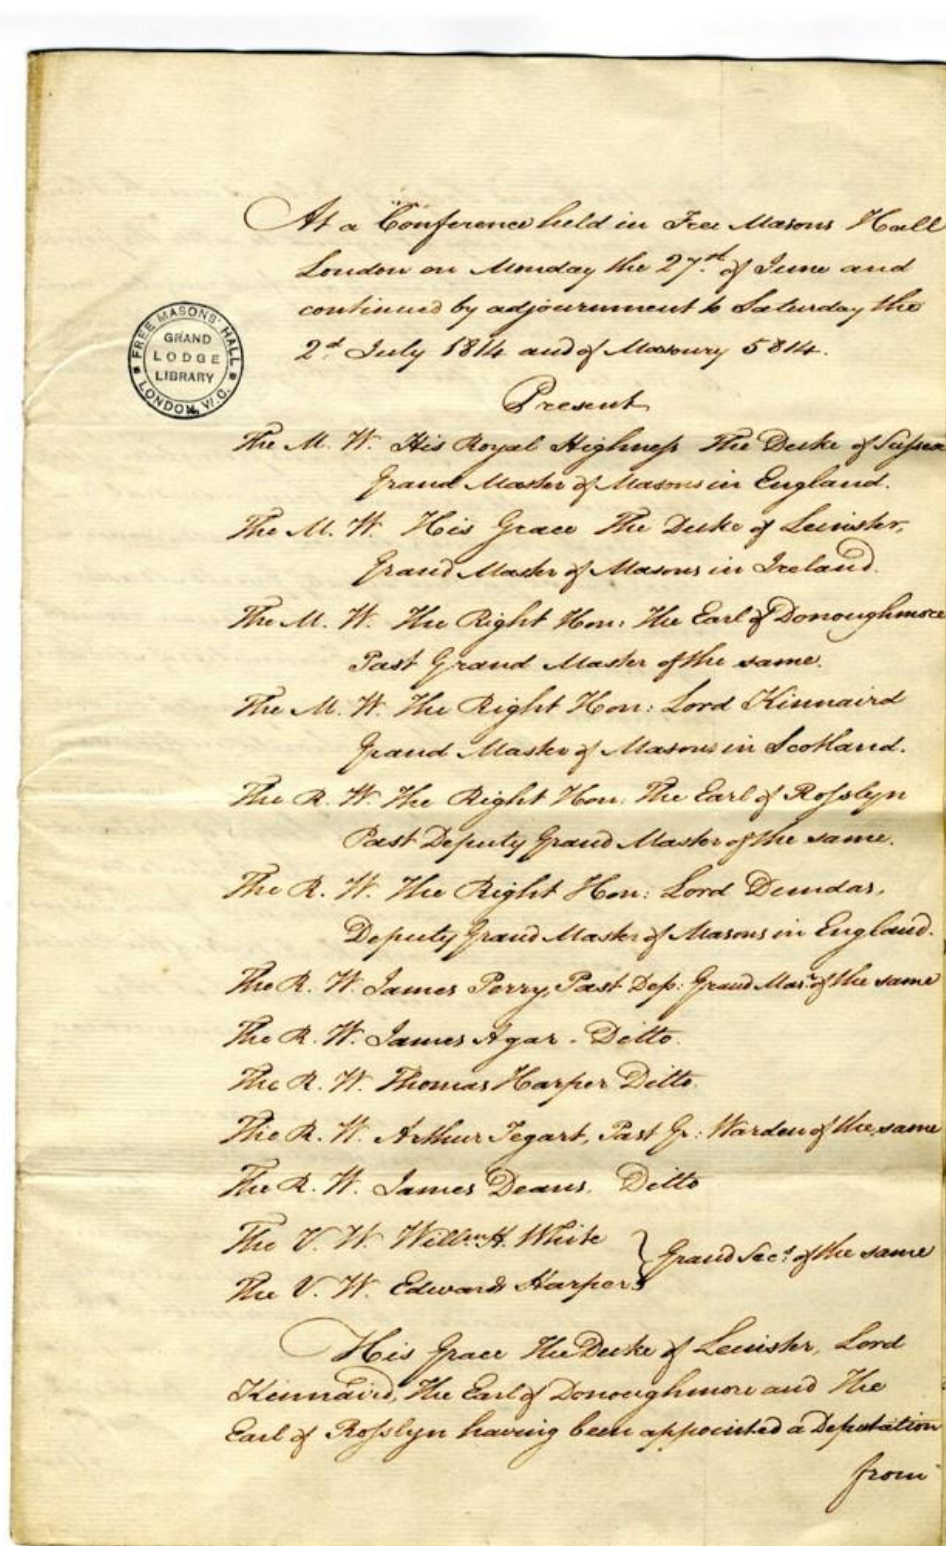 At a Conference held in Free Masons Hall
London on Monday the 27th. of June and
continued by adjournment to Saturday the
2d. July 1814 and of Masonry 5814.
FREE MASONS' HALL
GRAND
LODGE
LIBRARY
LONDON, W.C.
Present
The M. W. His Royal Highneſs The Duke of Suſsex
Grand Master of Masons in England.
The M. W. His Grace The Duke of Leinster,
Grand Master of Masons in Ireland.
The M. W. The Right Hon: The Earl of Donoughmore
Past Grand Master of the same.
The M. W. The Right Hon: Lord Kinnaird
Grand Master of Masons in Scotland.
The R. W. The Right Hon: The Earl of Roſslyn
Past Deputy Grand Master of the same.
The R. W. The Right Hon: Lord Dundas,
Deputy Grand Master of Masons in England.
The R. W. James Perry, Past Dep: Grand Masr. of the same
The R. W. James Agar - Ditto.
The R. W. Thomas Harper Ditto.
The R. W. Arthur Tegart, Past Gr: Warden of the same
The R. W. James Deans, Ditto
The V. W. Willm. H. White
The V. W. Edwards Harper } Grand Secs. of the same
His Grace The Duke of Leinster, Lord
Kinnaird, The Earl of Donoughmore and The
Earl of Roſslyn having been appointed a Deputation
from